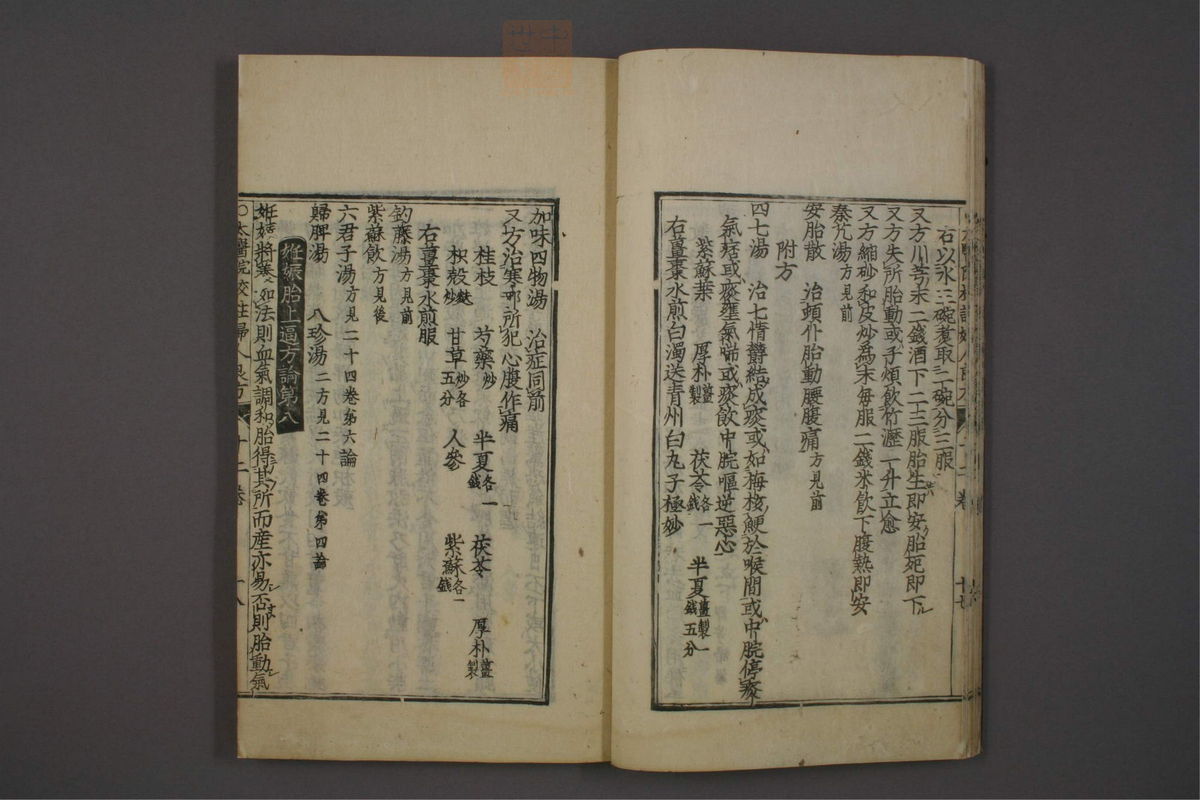 右以水三碗煮取二碗分三服
又方川芎末二錢酒下二三服胎生即安胎死即下
又方失所胎動或子煩飲竹瀝一升立愈
又方縮砂和皮炒爲末每服二錢米飲下腹熱即安
秦艽湯方見前
安胎散 治頓仆胎動腰腹痛方見前
附方
四七湯 治七情欝結成痰或如梅核鯁於喉間或中脘停痰
氣痞或痰壅氣喘或痰飲中脘嘔逆惡心
紫蘇葉 厚朴薑製 茯苓各一錢 半夏薑製一錢五分
右薑棗水煎白濁送青州白丸子極妙
加味四物湯 治症同前
又方治寒邪所犯心腹作痛
桂枝 芍藥炒 半夏各一錢 茯苓 厚朴薑製
枳殼麩炒 甘草炒各五分 人參 紫蘇各一錢
右薑棗水煎服
鈎藤湯方見前
紫蘇飲方見後
六君子湯方見二十四卷第六論
歸脾湯 八珍湯二方見二十四卷第四論
妊娠胎上逼方論第八
妊娠將養如法則血氣調和胎得其所而產亦易否則胎動氣
○太醫院校註婦人良方 十二卷 十八